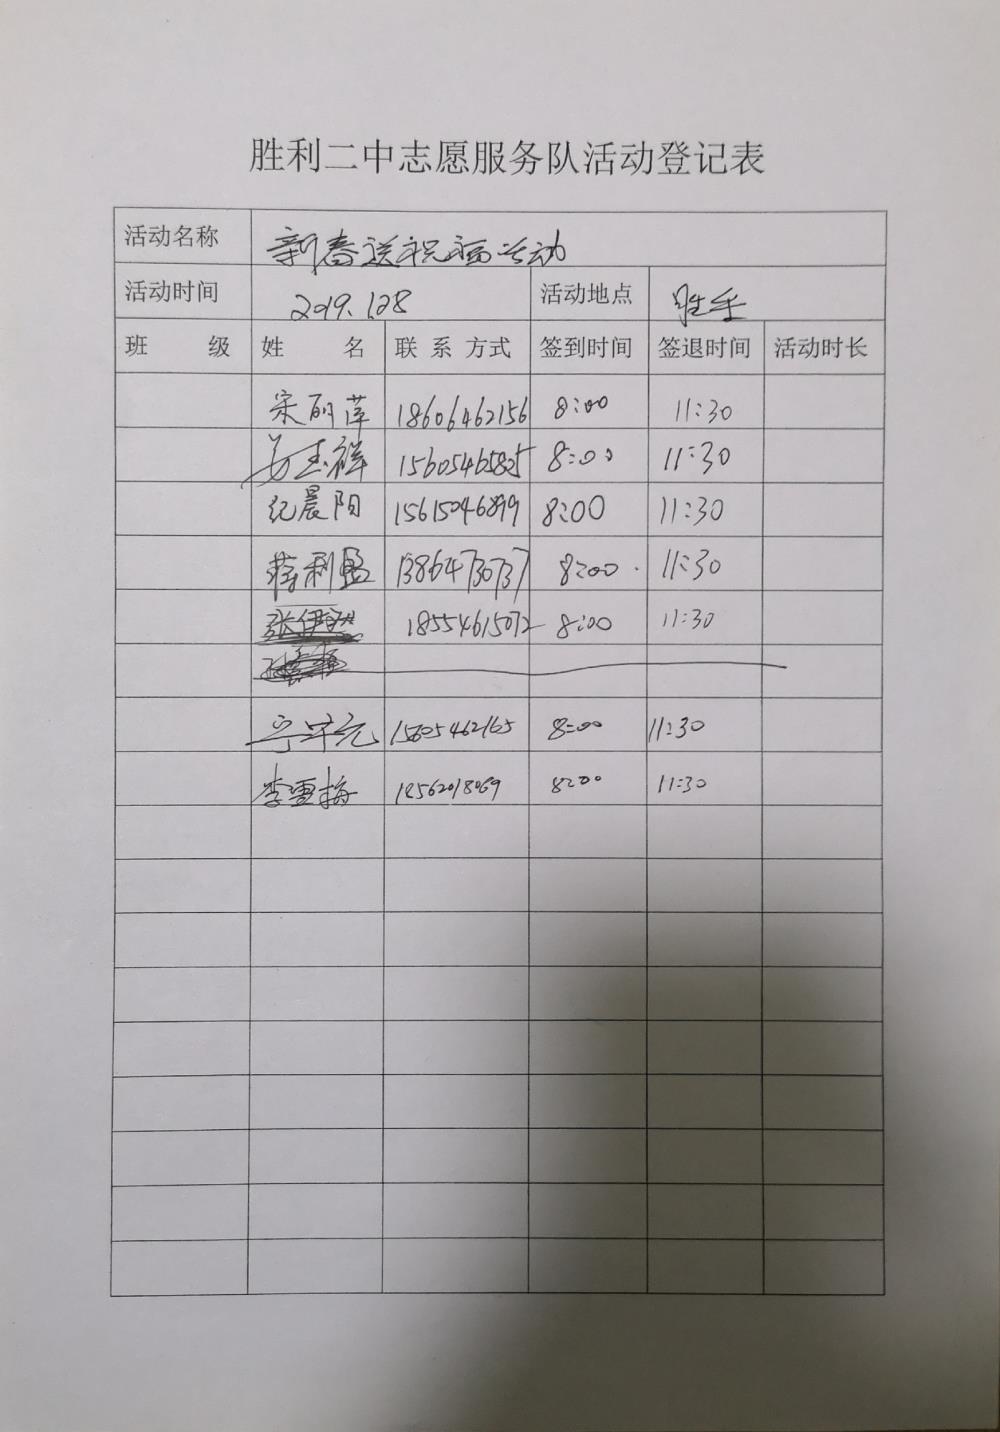 胜利二中志愿服务队活动登记表
活动名称 新春送祝福活动
活动时间 2019.1.28 活动地点 胜采
班 级 姓 名 联 系 方式 签到时间 签退时间 活动时长
宋丽萍 18606462156 8:00 11:30
姜志祥 15605465825 8:00 11:30
纪晨阳 15615046899 8:00 11:30
蒋利盈 13864730737 8:00 11:30
18554615072 8:00 11:30
15605462165 8:00 11:30
李雪梅 18562018069 8:00 11:30